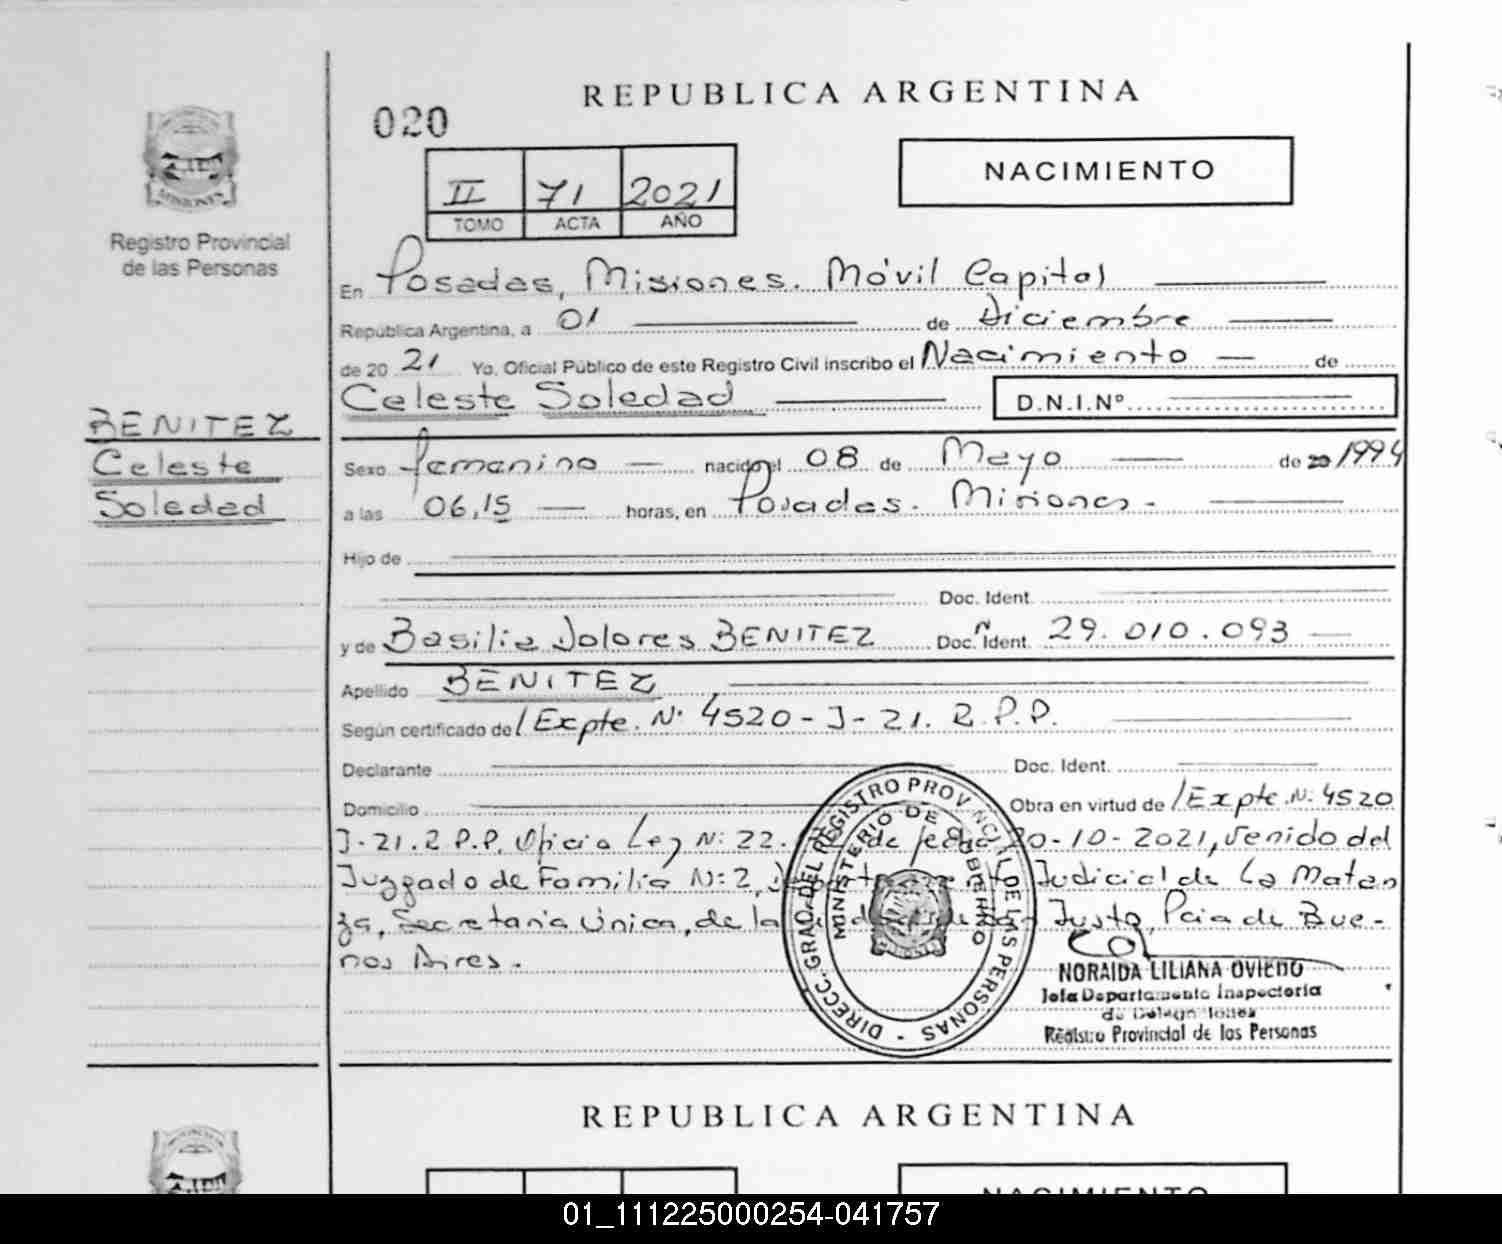 REPUBLICA ARGENTINA
020
NACIMIENTO
II 71 2021
TOMO ACTA AÑO
MISIONES
Registro Provincial
de las Personas
En Posadas, Misiones. Móvil Capital
República Argentina, a 01 de Diciembre
de 20 21 Yo, Oficial Público de este Registro Civil inscribo el Nacimiento de
Celeste Soledad D.N.I.Nº
BENITEZ
Celeste
Soledad
Sexo femenino nacido el 08 de Mayo de 20 1994
a las 06,15 horas, en Posadas. Misiones.
Hijo de
Doc. Ident.
y de Basilia Dolores BENITEZ Doc. Ident. N 29.010.093
Apellido BENITEZ
Según certificado de / Expte. N· 4520-J-21. R.P.P.
Declarante Doc. Ident.
Domicilio Obra en virtud de / Expte. N: 4520
J-21.R.P.P. Oficio Ley N: 22. de fecha 20-10-2021, venido del
Juzgado de Familia N:2, Judicial de La Matan
za, Secretaría Única, de la Justo, Pcia de Bue-
nos Aires.
DIRECC. GRAO. DEL REGISTRO PROVINCIAL DE LAS PERSONAS
MINISTERIO DE GOBIERNO
NORAIDA LILIANA OVIEDO
Jefa Departamento Inspectoría
de Delegaciones
Registro Provincial de las Personas
REPUBLICA ARGENTINA
NACIMIENTO
01_111225000254-041757